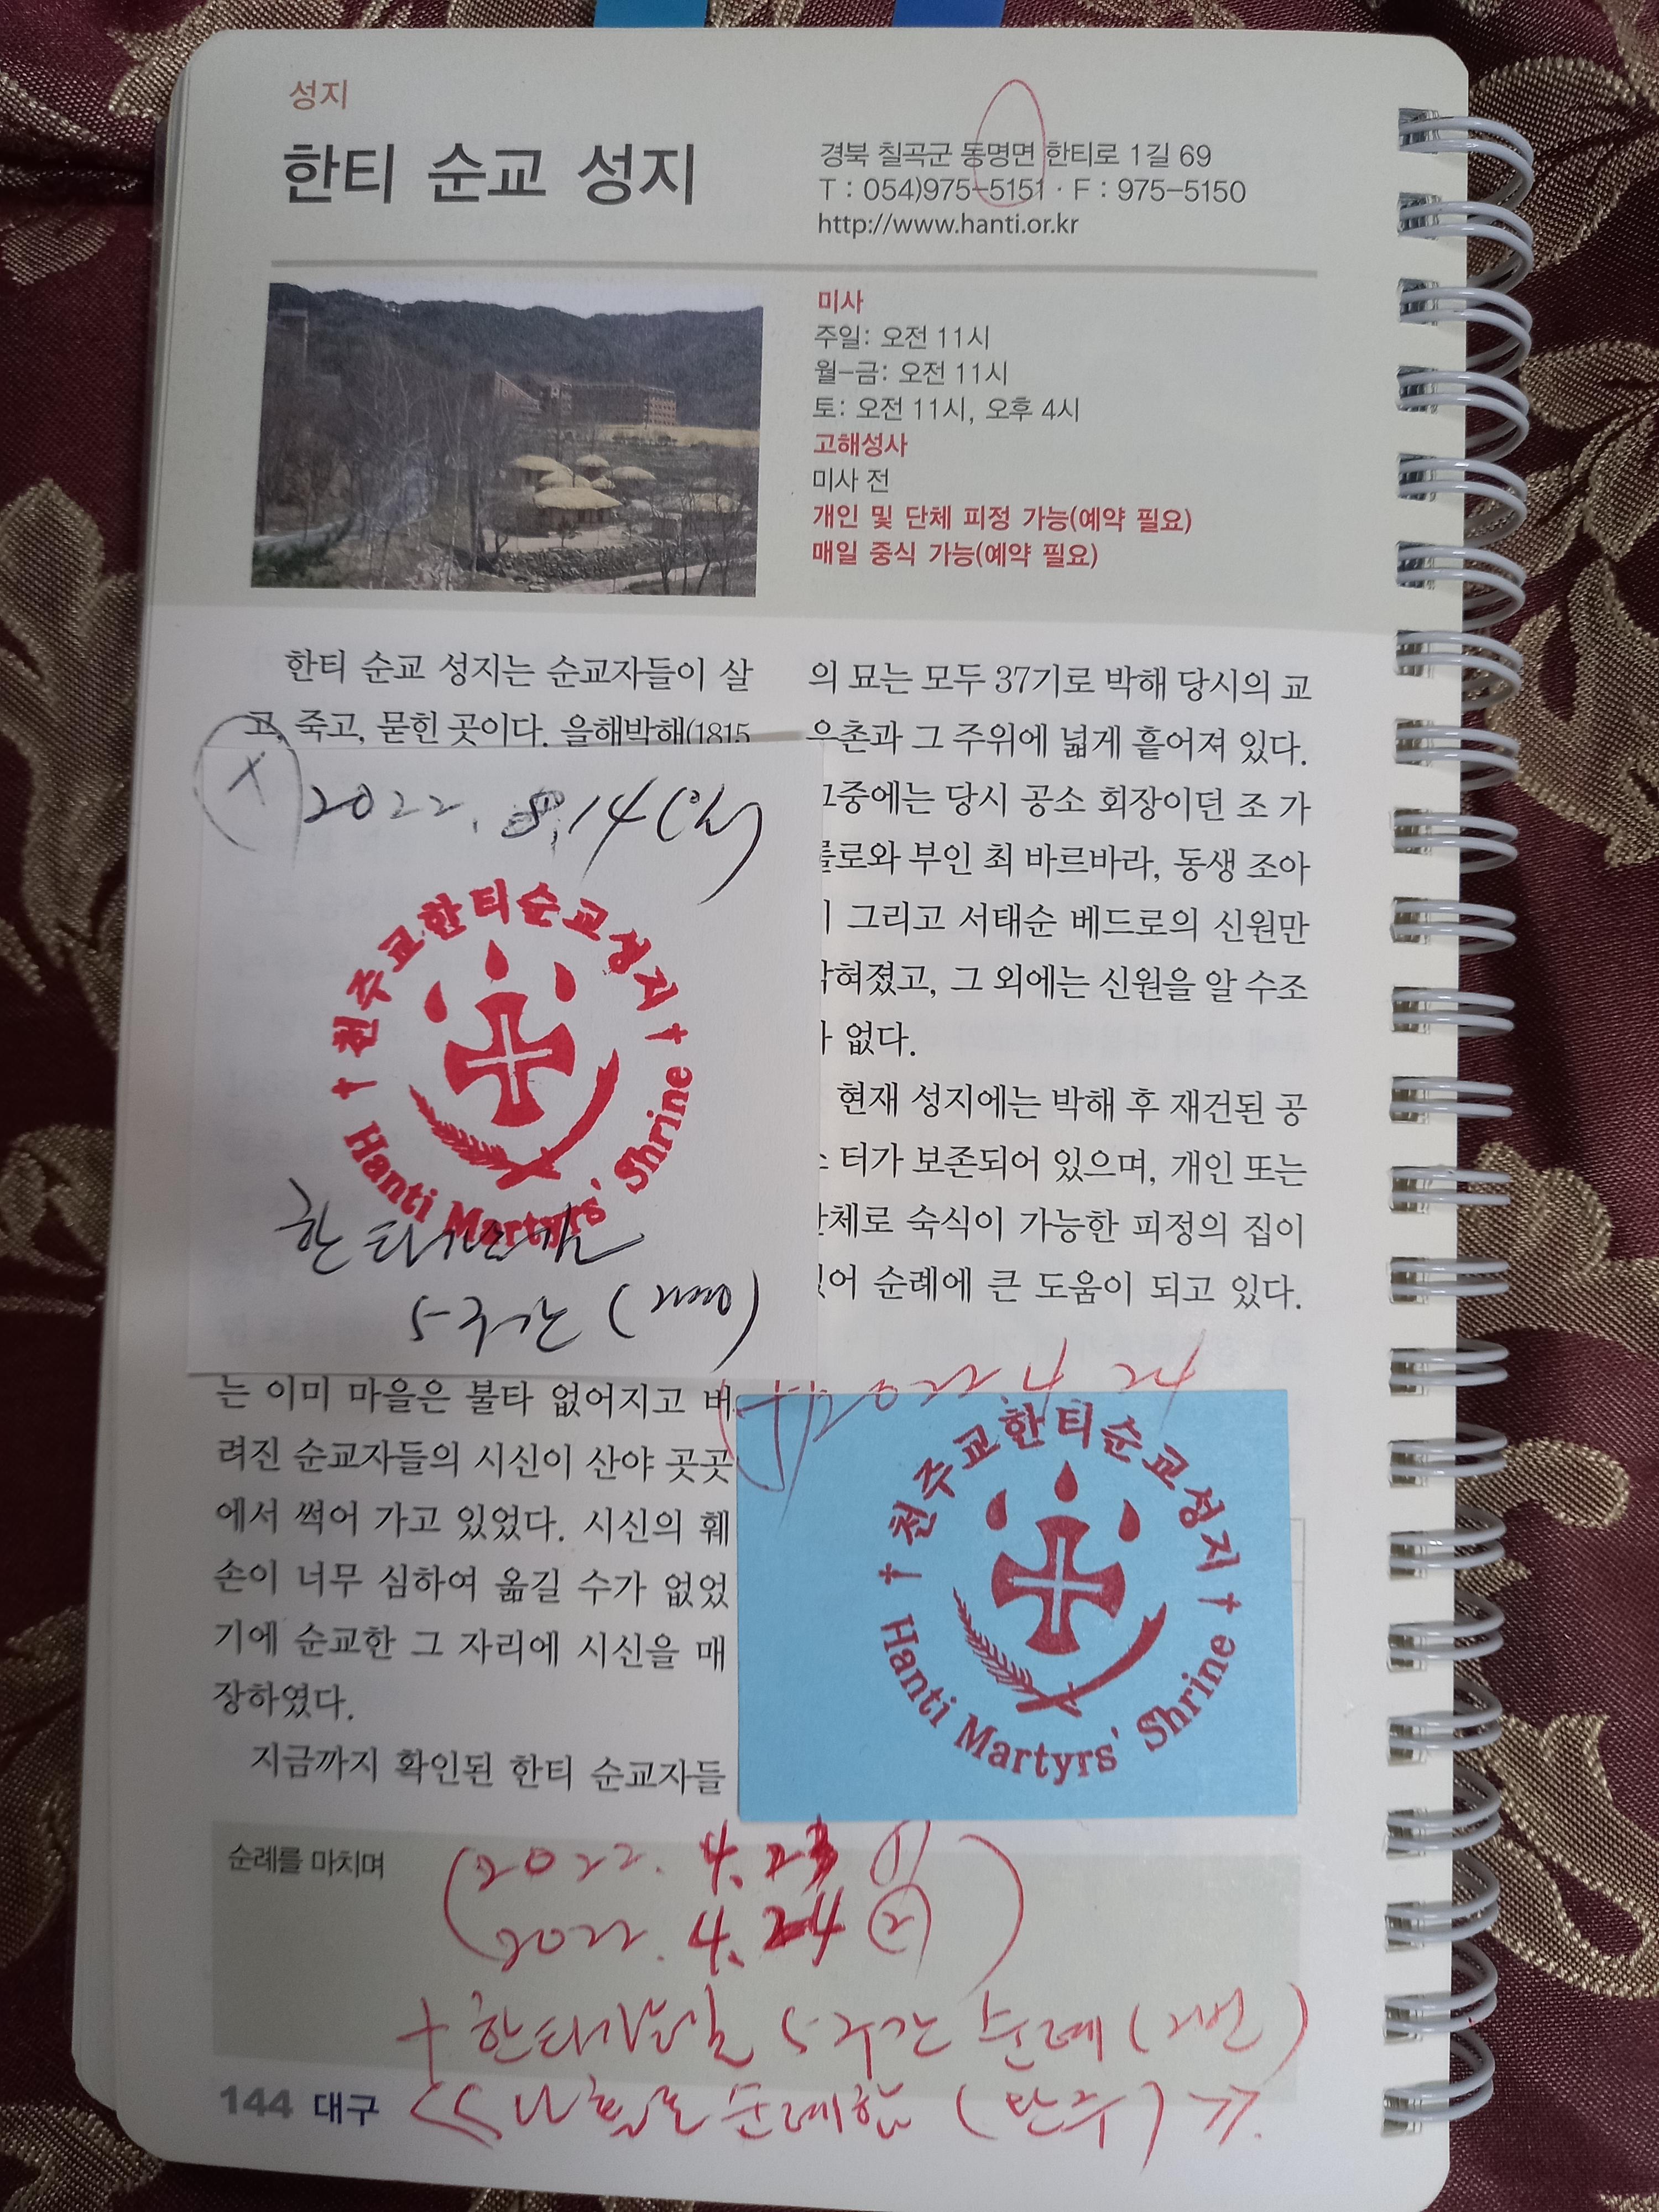 성지
한티 순교 성지
경북 칠곡군 동명면 한티로 1길 69
T : 054)975-5151 · F : 975-5150
http://www.hanti.or.kr
미사
주일: 오전 11시
월-금: 오전 11시
토: 오전 11시, 오후 4시
고해성사
미사 전
개인 및 단체 피정 가능(예약 필요)
매일 중식 가능(예약 필요)
한티 순교 성지는 순교자들이 살
고, 죽고, 묻힌 곳이다. 을해박해(1815
2022. 8. 14 (일)
✝천주교한티순교성지✝
Hanti Martyrs' Shrine
한티가는길
5구간
는 이미 마을은 불타 없어지고 버
려진 순교자들의 시신이 산야 곳곳
에서 썩어 가고 있었다. 시신의 훼
손이 너무 심하여 옮길 수가 없었
기에 순교한 그 자리에 시신을 매
장하였다.
지금까지 확인된 한티 순교자들
의 묘는 모두 37기로 박해 당시의 교
우촌과 그 주위에 넓게 흩어져 있다.
그중에는 당시 공소 회장이던 조 가
롤로와 부인 최 바르바라, 동생 조아
그리고 서태순 베드로의 신원만
밝혀졌고, 그 외에는 신원을 알 수조
없다.
현재 성지에는 박해 후 재건된 공
소 터가 보존되어 있으며, 개인 또는
단체로 숙식이 가능한 피정의 집이
있어 순례에 큰 도움이 되고 있다.
2022. 4. 24
✝천주교한티순교성지✝
Hanti Martyrs' Shrine
순례를 마치며
(2022. 4. 23 ①
2022. 4. 24 ②)
+ 한티가는길 5구간 순례 (2번)
<<나홀로 순례함 (완주)>>.
144 대구